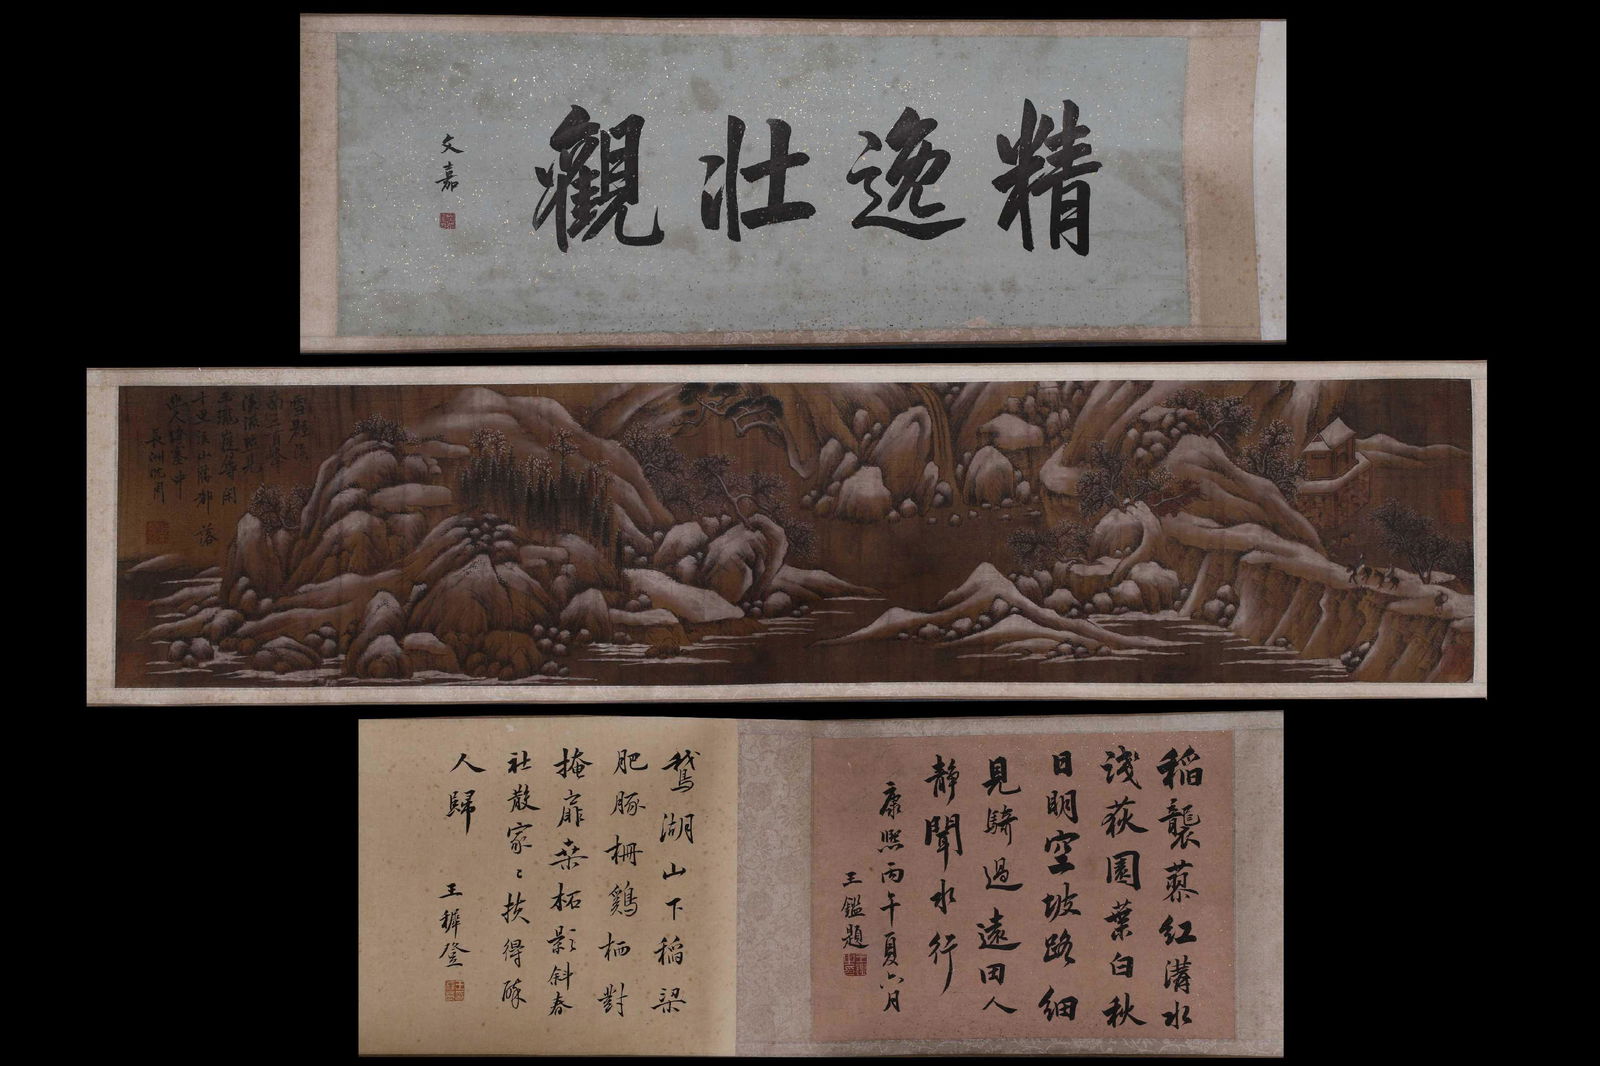 精逸壮觀
文嘉
南三百峰
長洲沈周
稻襲蓼紅溝水
淺荻園葉白秋
日明空坡路細
見騎過遠田人
靜聞水行
康熙丙午夏六月
王鑑題
鵞湖山下稻梁
肥豚柵鷄栖對
掩扉桑柘影斜春
社散家々扶得酔
人歸
王穉登